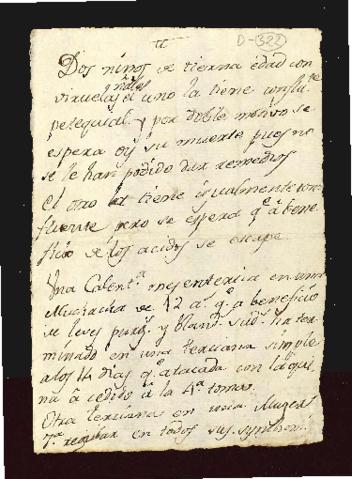 D-322
Dos niños de tierna edad con
viruelas malas el uno la tiene conflu.te
petequial y por doble motivo se
espera oy su muerte pues no
se le han podido dar remedios
El otro la tiene igualmente con
fluente pero se espera q.e a bene
ficio de los acidos se escape.
Una Calent.a mesenterica en una
Muchacha de 12 a.s q. a beneficio
de leves purg.s y bland.s sud.s ha ter
minado en una terciana simple
a los 14 dias q.e atacada con la qui
na à cedido à la 4.a toma.
Otra terciana en una Muger
regular en todos sus symthom.s